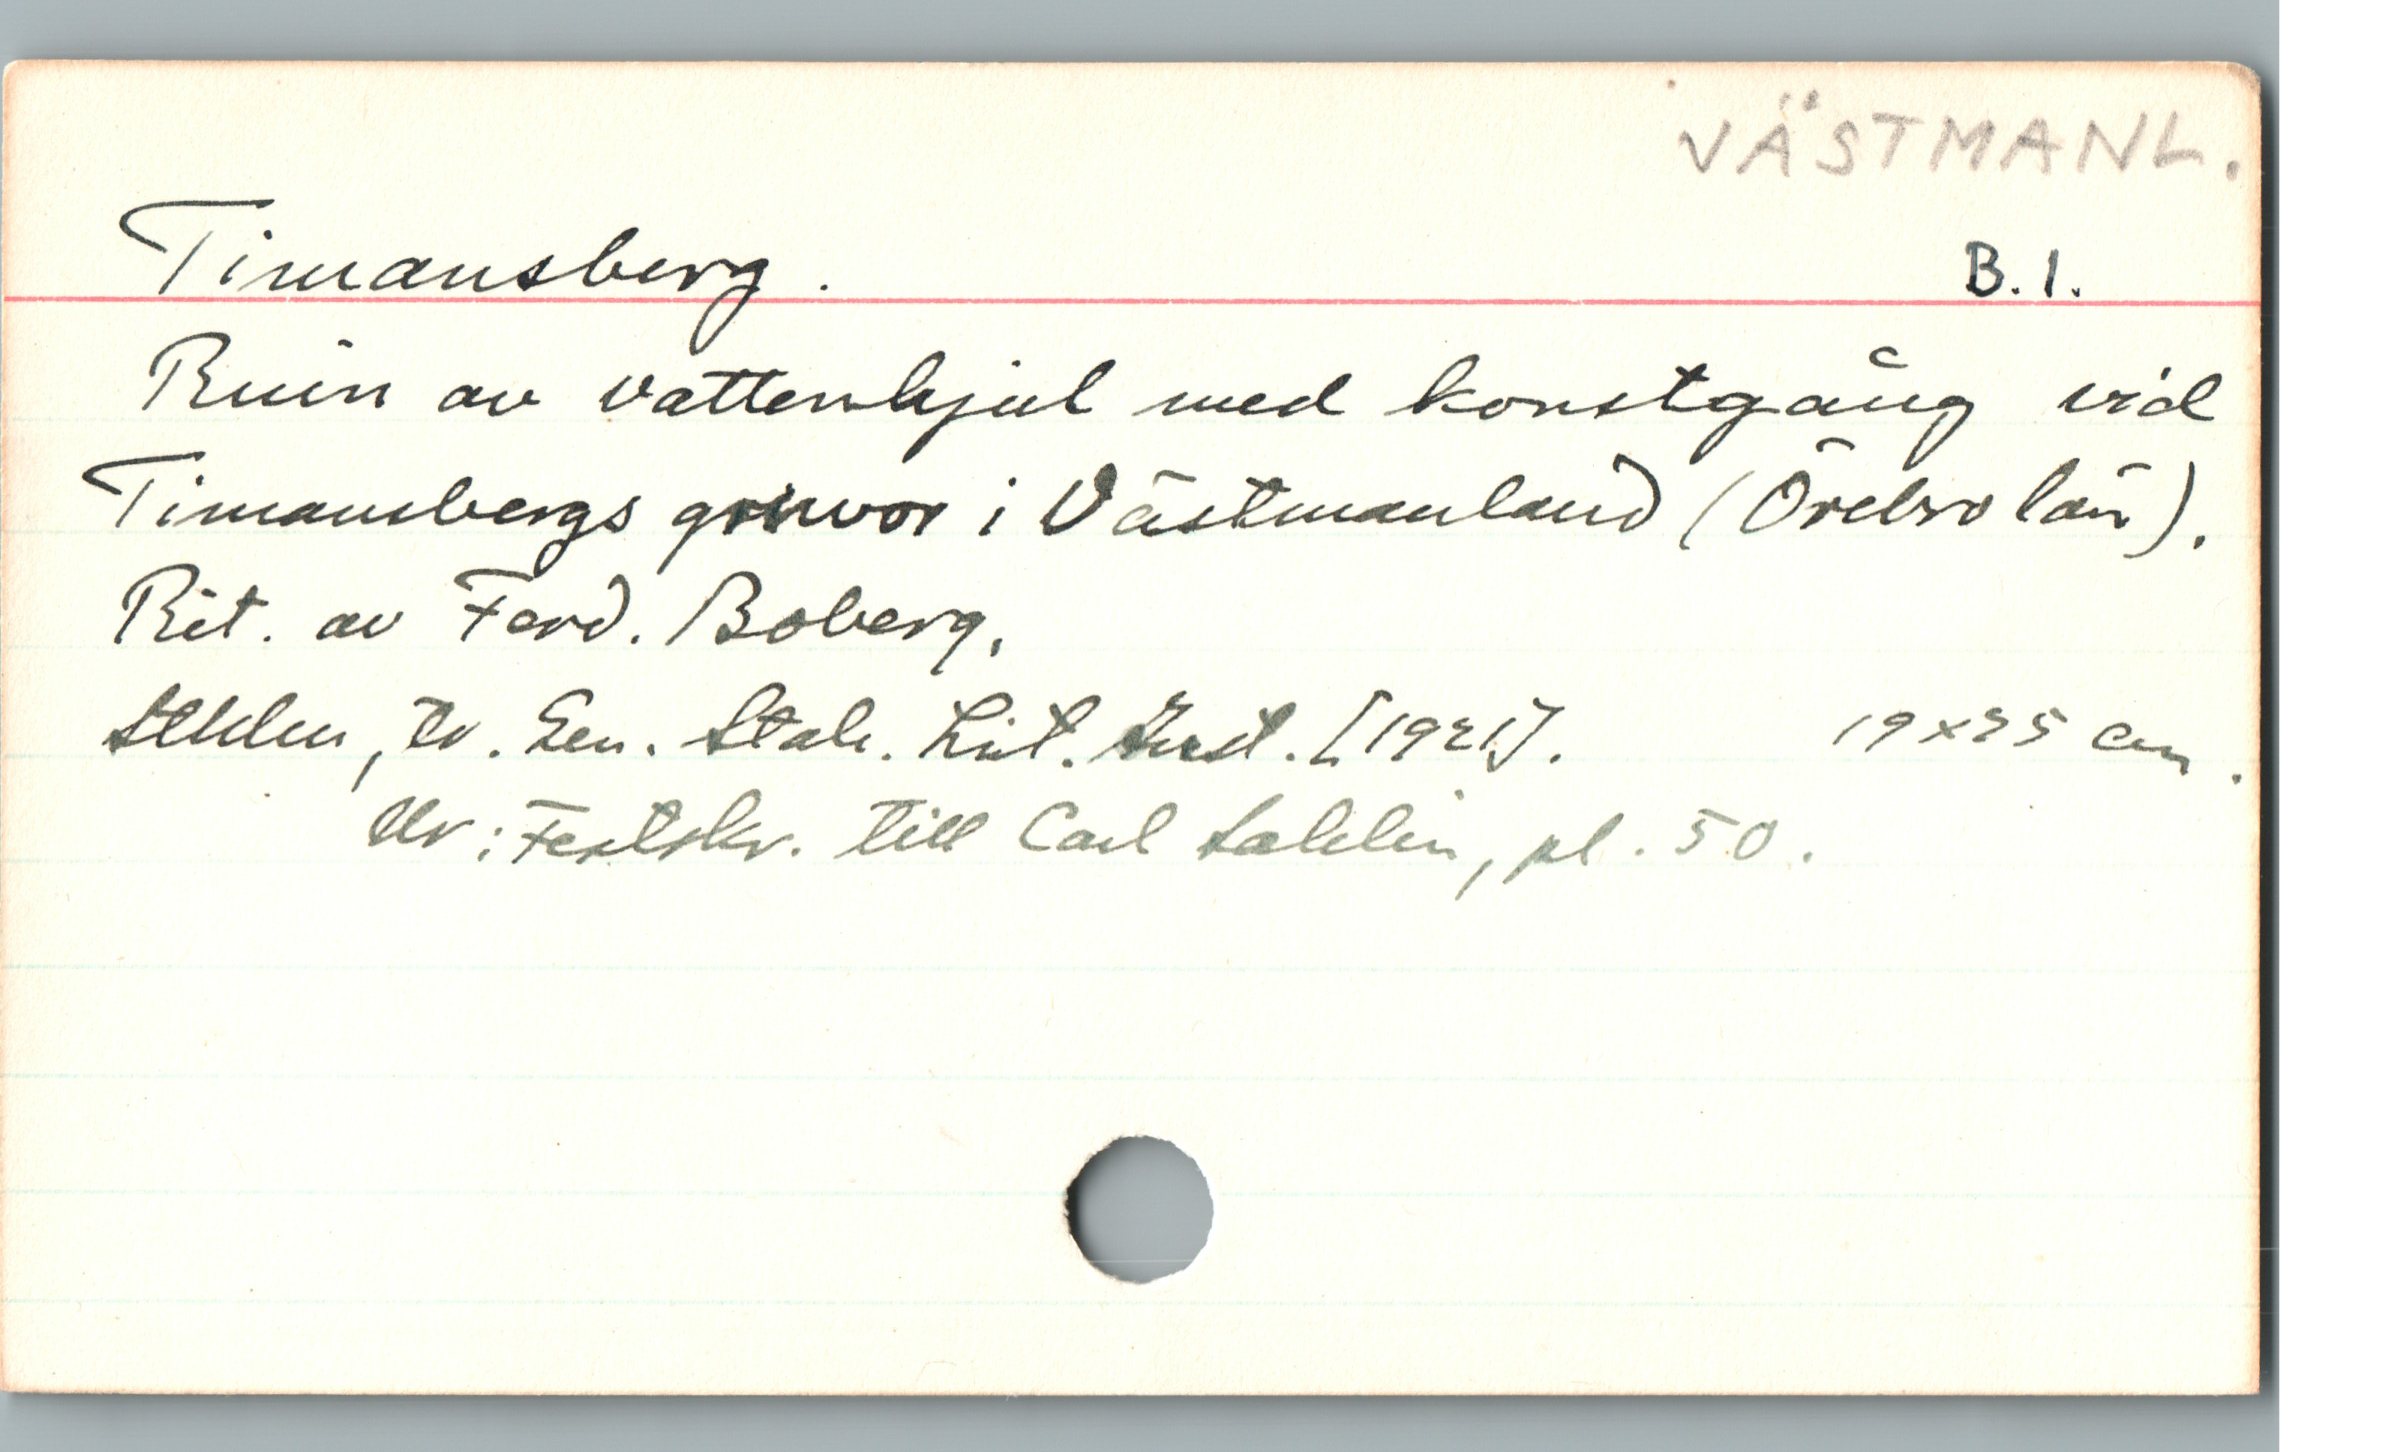 VÄSTMANL.
Timansberg.
B.1.
Ruin av vattenhjul med konstgång vid
Timansbergs gruvor i Västmanland (Örebro län).
Rit. av Ferd. Boberg.
Sthlm, tr. Gen. Stab. Lit. Inst. [1921].
19 x 25 cm.
Ur: Festskr. till Carl Sahlin, pl. 50.